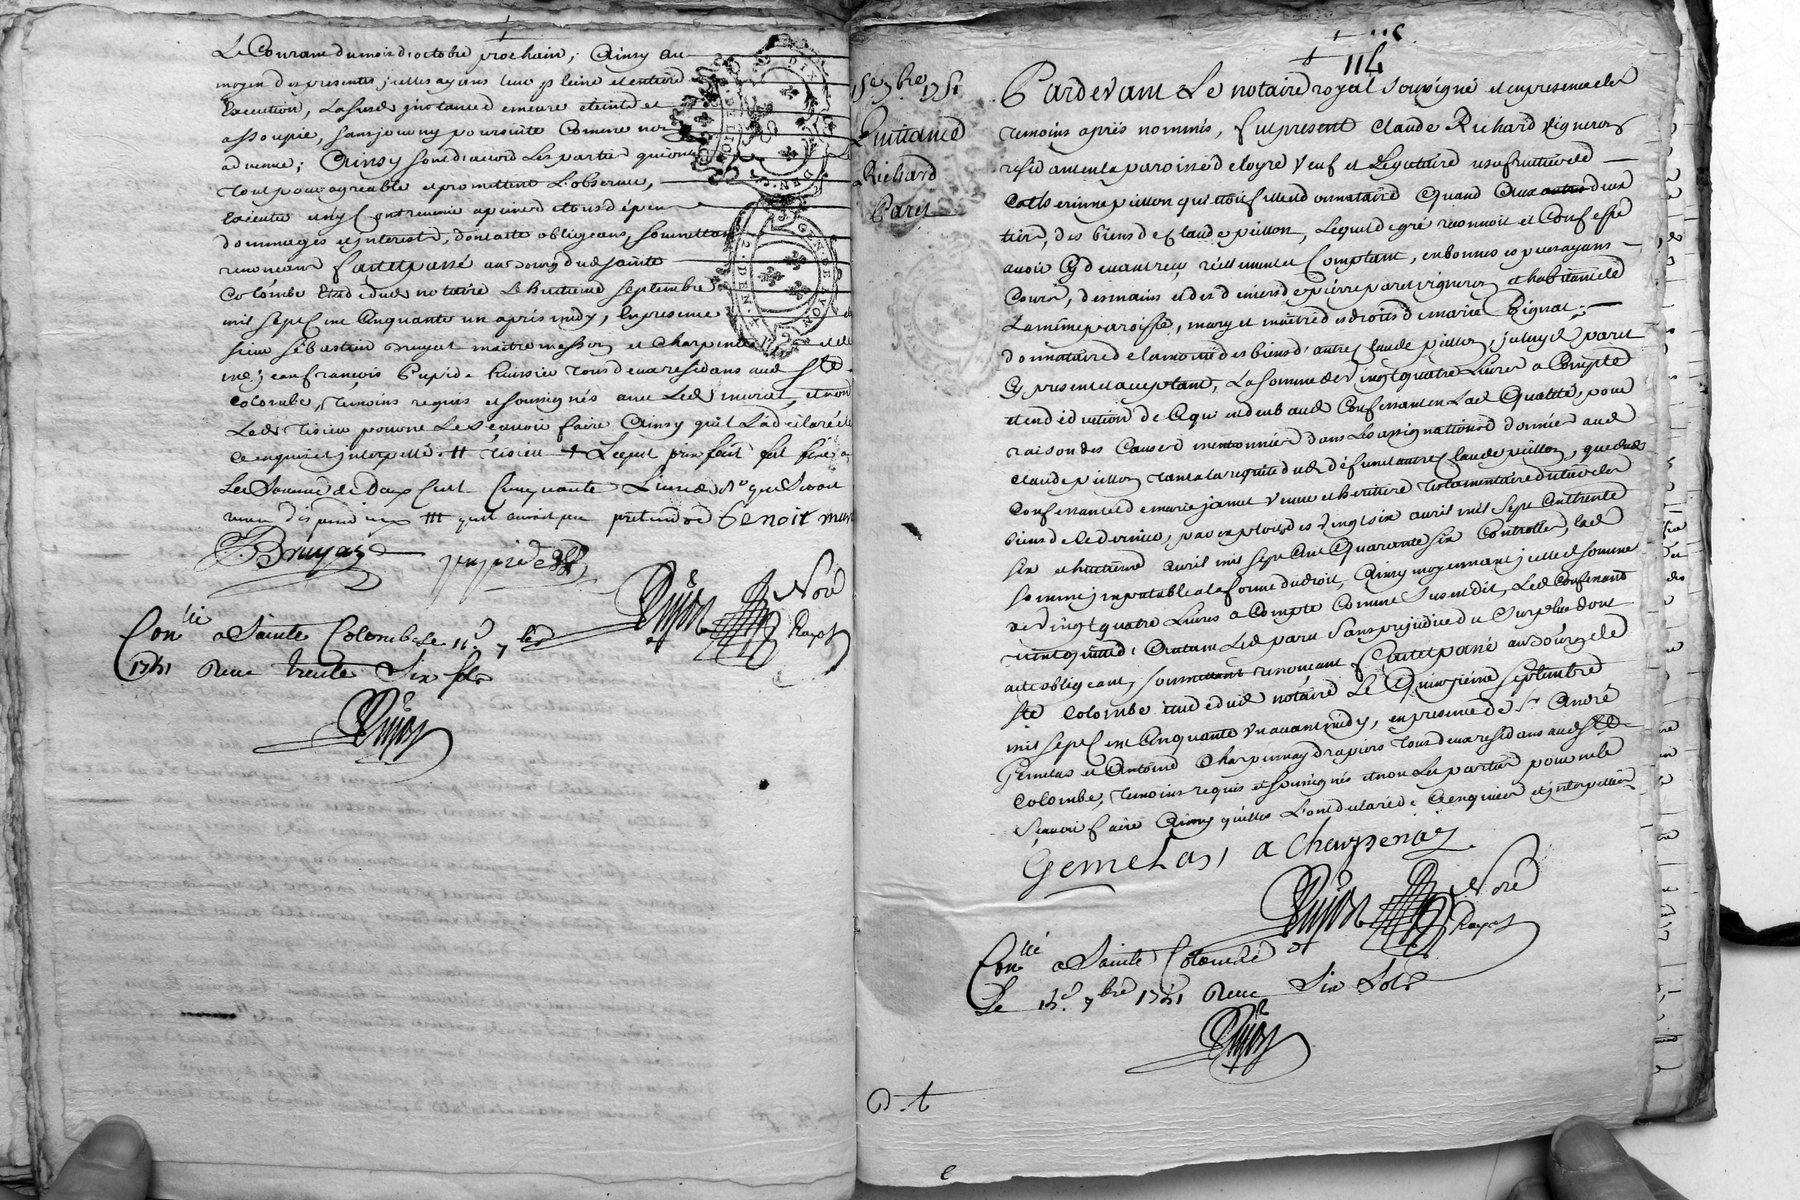 Le Courant du mois d'octobre prochain; Ainsy au
moyen des presentes icelles ayans leur pleine et entiere
Execution, La susd. instance demeure eteinte et
assoupie, sans pouvoir y poursuivre Comme non
advenue; Ainsy sont d'accord Les parties qui ont
tout pour agreable et promettent L'observer,
Executer et n'y Contrevenir a peine de tous depens
dommages et interest, dont acte obligeans, soumettans
renonceans fait et passé au bourg dud. sainte
Colombe Etude dud. notaire Le huitieme septembre
mil sept Cent Cinquante un après midy, En presence de
sieur Sébastien Bruyat maitre masson et Charpentier et de
me. jean françois Pupide huissier tous deux residans aud. Ste.
Colombe, temoins requis et soussignés avec Led. murat, et non
Led. tisieu pour ne Le sçavoir faire Ainsy qu'il L'a declaré de
ce enquis et interpellé. tisieu + Lequel prix fait fut fixé a
La Somme de Deux Cent Cinquante Livres
qu'il auroit peu pretendre Benoit murat
J. Bruyas pupide
Dujas Nore.
Royal
Conllé a Sainte Colombe Le 11e 7bre
1751 Reçu trente Six sols
Dujas
114
15e 7bre 1751
Quittance
Richard
Paret
Pardevant Le notaire royal soussigné et en presence des
temoins après nommés, fut present Claude Richard vigneron
residant en La paroisse de Loyre veuf et Legataire usufruitier de
Catherine pitton qui étoit fille et donnataire Quand Aux deux
tiers, des biens de Claude pitton, Lequel de gré reconnoit et Confesse
avoir Cy devant reçu réellement et Comptant, en bonnes especes ayans
Cours, des mains et deniers de pierre paret vigneron et habitant de
La même paroisse, mary et maitre des droits de marie Pignat
donnataire de La moitié des biens d'autre Claude pitton, iceluy paret
Cy present et acceptant, La somme de vingt quatre Livres a Compte
et en déduction de Ce qui est deub aud. Confessant en Lad. Qualité, pour
raison des Causes mentionnées dans Les assignations données aud.
Claude pitton tant a La requête dud. défunt autre Claude pitton, que dud.
Confessant et de marie jamet veuve et heritiere testamentaire du tiers des
biens de Ce dernier, par exploits des vingt six avril mil sept Cent trente
six et huitieme avril mil sept Cent Quarante six Controllés, Lad.
somme imputable a la forme du droit, Ainsy moyennant icelle d. somme
de vingt quatre Livres a Compte Comme dessus est dit, Led. Confessant
tient quitte d'Autant Led. paret sans prejudice du Surplus dont
acte obligeant, soumettant renonçant fait et passé au bourg de
Ste. Colombe Etude dud. notaire Le Quinzieme septembre
mil sept Cent Cinquante un avant midy, en presence de Sr. André
Gemelas et Antoine Charpenay drapiers tous deux residans aud. Ste.
Colombe, temoins requis et soussignés et non Les parties pour ne Le
sçavoir faire Ainsy qu'elles L'ont declaré de Ce enquises et interpellées
Gemelas a Charpenay
Dujas Nore.
Royal
Conllé a Sainte Colombe
Le 15e 7bre 1751 Reçu Six Sols
Dujas
D. t